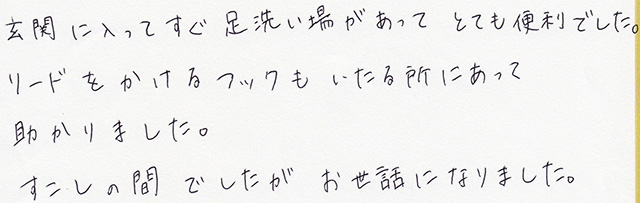 玄関に入ってすぐ足洗い場があって とても便利でした。
リードをかけるフックもいたる所にあって
助かりました。
すこしの間でしたが お世話になりました。